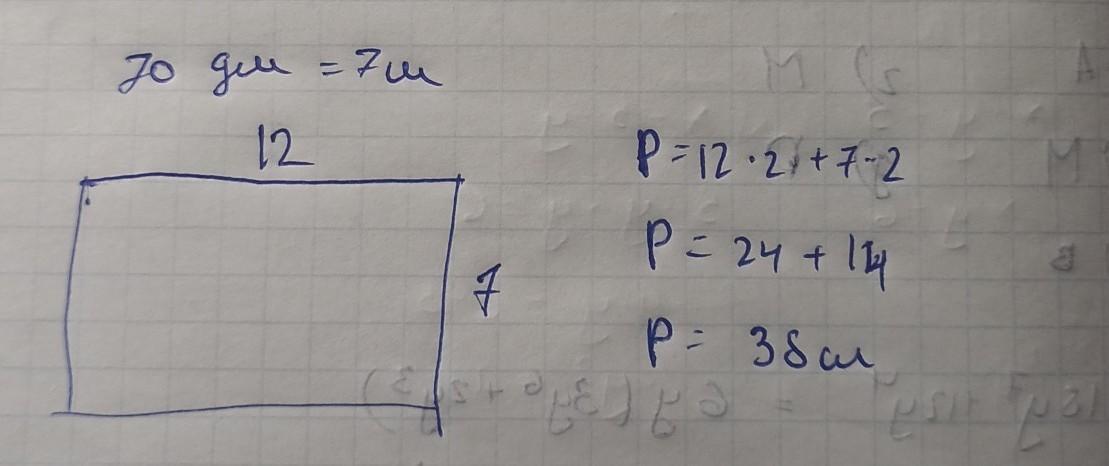 70 дм = 7м
12
P = 12 · 2 + 7 · 2
7
P = 24 + 14
P = 38 см